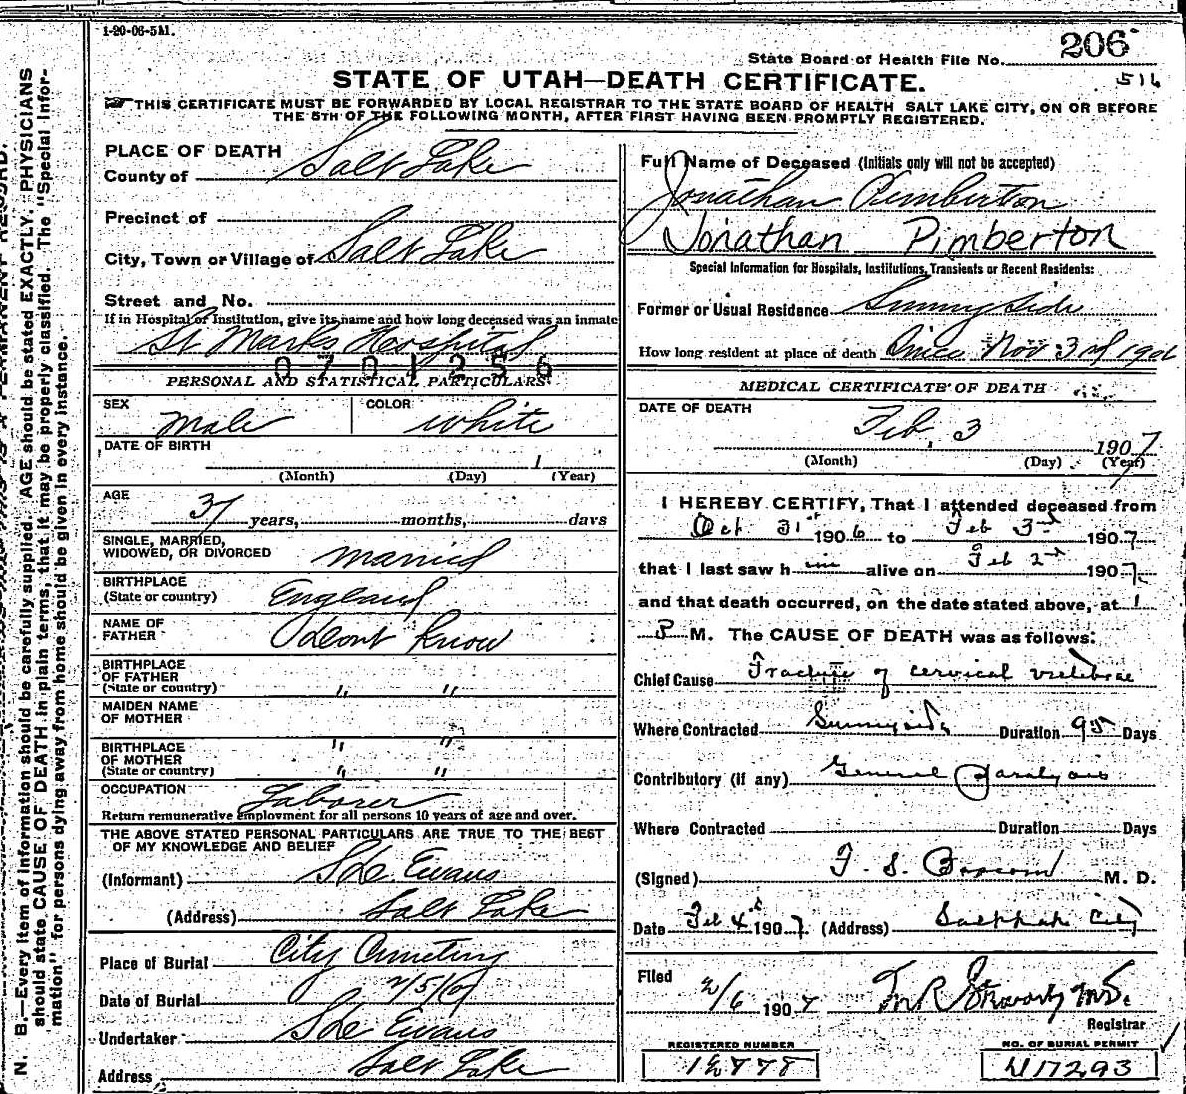 1-20-06-5M.
State Board of Health File No. 206
516
STATE OF UTAH—DEATH CERTIFICATE.
THIS CERTIFICATE MUST BE FORWARDED BY LOCAL REGISTRAR TO THE STATE BOARD OF HEALTH SALT LAKE CITY, ON OR BEFORE
THE 5TH OF THE FOLLOWING MONTH, AFTER FIRST HAVING BEEN PROMPTLY REGISTERED.
PLACE OF DEATH
County of Salt Lake
Precinct of
City, Town or Village of Salt Lake
Street and No.
If in Hospital or Institution, give its name and how long deceased was an inmate
St Marks Hospital
0701256
PERSONAL AND STATISTICAL PARTICULARS
SEX Male COLOR White
DATE OF BIRTH
1
(Month) (Day) (Year)
AGE
37 years, months, days
SINGLE, MARRIED,
WIDOWED, OR DIVORCED Married
BIRTHPLACE
(State or country) England
NAME OF
FATHER Dont Know
BIRTHPLACE
OF FATHER
(State or country) " "
MAIDEN NAME
OF MOTHER
" "
BIRTHPLACE
OF MOTHER
(State or country) " "
OCCUPATION Laborer
Return remunerative employment for all persons 10 years of age and over.
THE ABOVE STATED PERSONAL PARTICULARS ARE TRUE TO THE BEST
OF MY KNOWLEDGE AND BELIEF
(Informant) Evans
(Address) Salt Lake
Place of Burial City Cemetery
Date of Burial 2/5/07
Undertaker Evans
Address Salt Lake
Full Name of Deceased (Initials only will not be accepted)
Jonathan Pimberton
Jonathan Pimberton
Special Information for Hospitals, Institutions, Transients or Recent Residents:
Former or Usual Residence Sunnyside
How long resident at place of death Since Nov 3rd 1906
MEDICAL CERTIFICATE OF DEATH
DATE OF DEATH
Feb. 3 1907
(Month) (Day) (Year)
I HEREBY CERTIFY, That I attended deceased from
Oct 31st 1906 to Feb 3rd 1907
that I last saw him alive on Feb 2nd 1907
and that death occurred, on the date stated above, at 1
P M. The CAUSE OF DEATH was as follows:
Chief Cause Fracture of cervical vertebrae
Where Contracted Sunnyside Duration 95 Days
Contributory (if any) General Paralysis
Where Contracted Duration Days
(Signed) F. S. M. D.
Date Feb 4th 1907. (Address) Salt Lake City
Filed 2/6 1907
Registrar
REGISTERED NUMBER
NO. OF BURIAL PERMIT
17293
N. B.—Every item of information should be carefully supplied. AGE should be stated EXACTLY. PHYSICIANS
should state CAUSE OF DEATH in plain terms, that it may be properly classified. The "Special Infor-
mation" for persons dying away from home should be given in every instance.